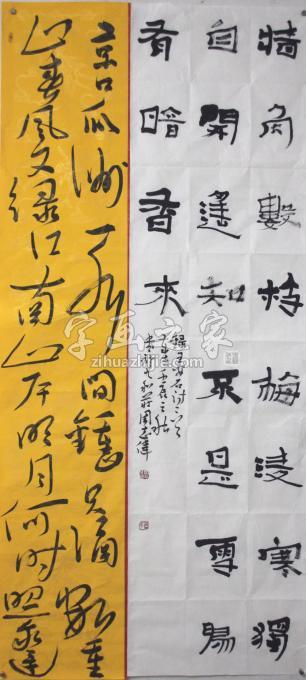 墙角數枝梅凌寒獨
自開遥知不是雪賜
有暗香来
録王安石诗二首
和莊周志偉
京口瓜洲一水间鍾只隔數重
山春风又绿江南岸明月何时照我還
字画之家
zihuazhijia.com